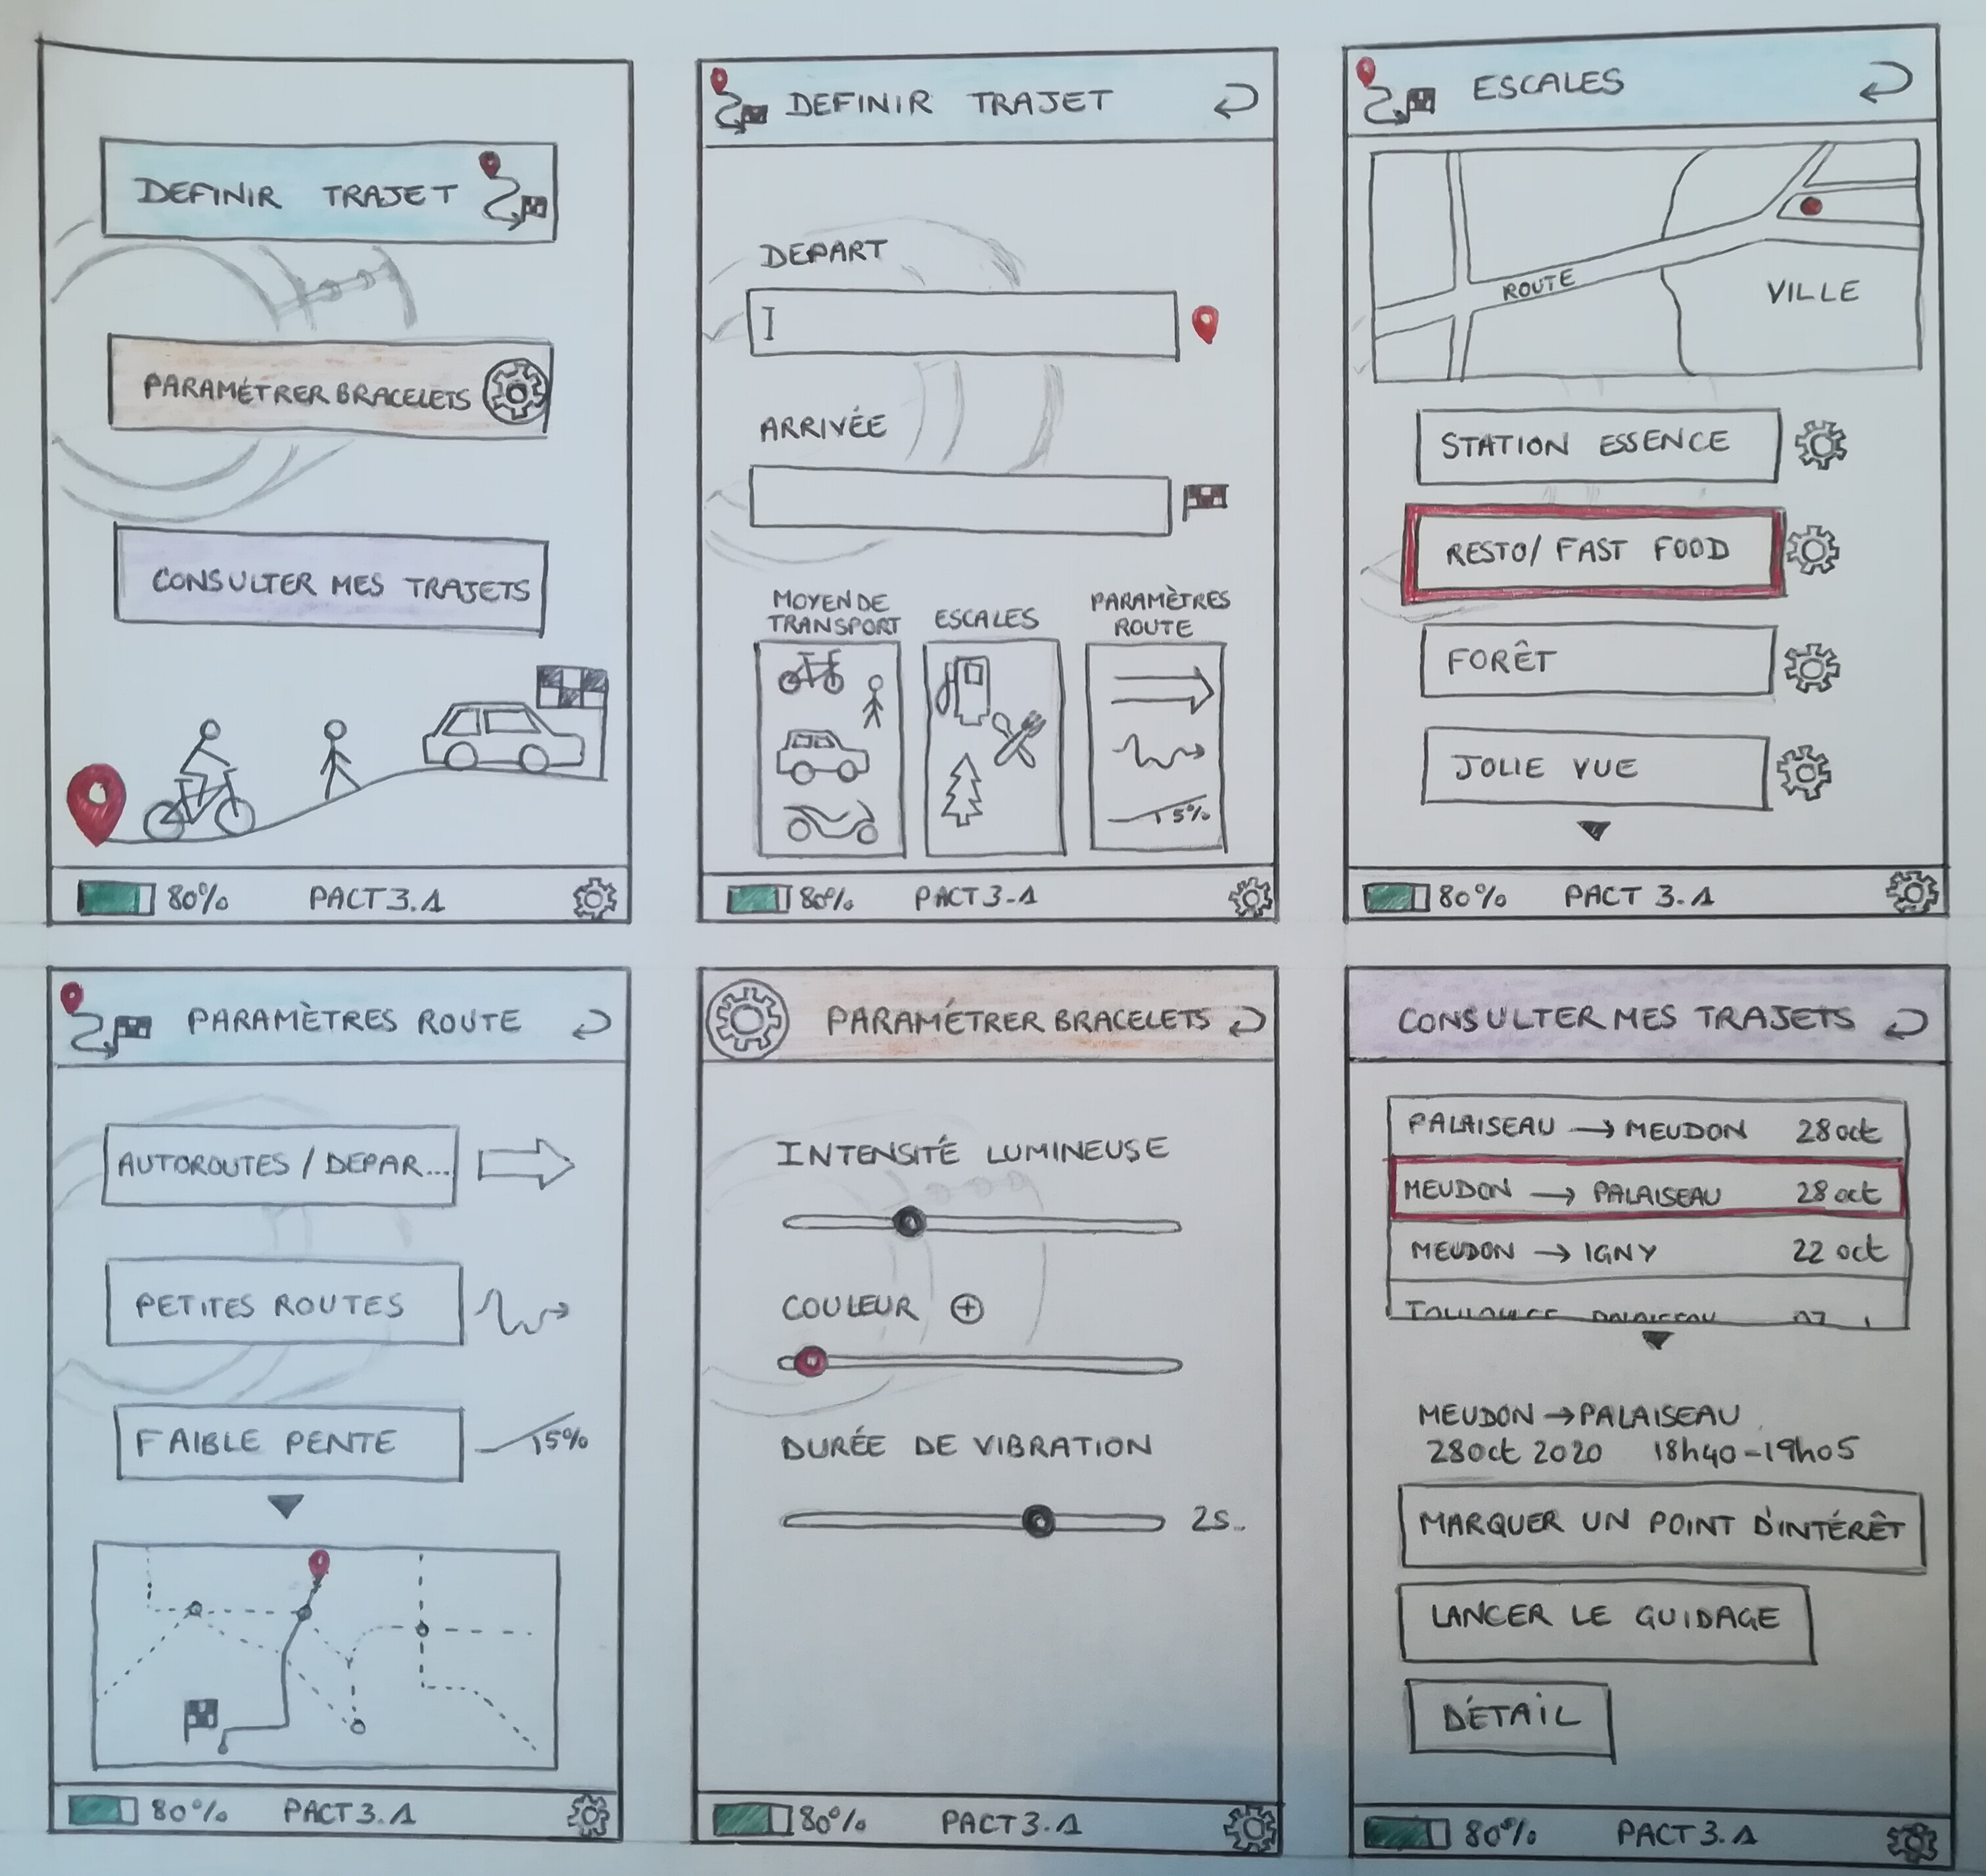 DEFINIR TRAJET
PARAMÉTRER BRACELETS
CONSULTER MES TRAJETS
80% PACT 3.1
DEFINIR TRAJET
DEPART
ARRIVÉE
MOYEN DE
TRANSPORT
ESCALES
PARAMÈTRES
ROUTE
5%
80% PACT 3.1
ESCALES
ROUTE
VILLE
STATION ESSENCE
RESTO/ FAST FOOD
FORÊT
JOLIE VUE
80% PACT 3.1
PARAMÈTRES ROUTE
AUTOROUTES / DEPAR...
PETITES ROUTES
FAIBLE PENTE
5%
80% PACT 3.1
PARAMÉTRER BRACELETS
INTENSITÉ LUMINEUSE
COULEUR
DURÉE DE VIBRATION
2s.
80% PACT 3.1
CONSULTER MES TRAJETS
PALAISEAU → MEUDON 28 oct
MEUDON → PALAISEAU 28 oct
MEUDON → IGNY 22 oct
MEUDON → PALAISEAU
28 oct 2020 18h40 - 19h05
MARQUER UN POINT D'INTÉRÊT
LANCER LE GUIDAGE
DÉTAIL
80% PACT 3.1